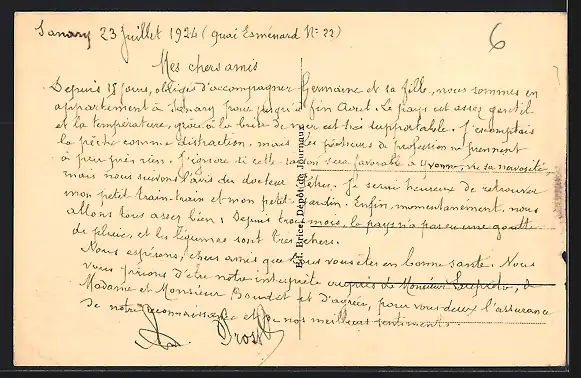 Sanary 23 Juillet 1924 (quai Esménard N° 22)
6
Mes chers amis
Depuis 15 jours, obligés d'accompagner Germaine et sa fille, nous sommes en
appartement à Sanary pour jusqu'à fin Août. Le pays est assez gentil
et la température, grâce à la brise de mer est très supportable. J'escomptais
la pêche comme distraction, mais les pêcheurs de profession n'y prennent
à peu près rien. J'ignore si cette saison sera favorable à Yvonne, vu sa nervosité,
mais nous suivons l'avis du docteur. Je serai heureux de retrouver
mon petit train-train et mon petit jardin. Enfin, momentanément, nous
allons tous assez bien. Depuis trois mois, le pays n'a pas eu une goutte
de pluie, et les légumes sont très chers.
Nous espérons, chers amis que vous êtes en bonne santé. Nous
vous prions d'être notre interprète auprès de Monsieur, de
Madame et Monsieur Bourdet et d'agréer, pour vous deux l'assurance
de notre reconnaissance et de nos meilleurs sentiments.
Prost
Brice, Dépôt de Journaux